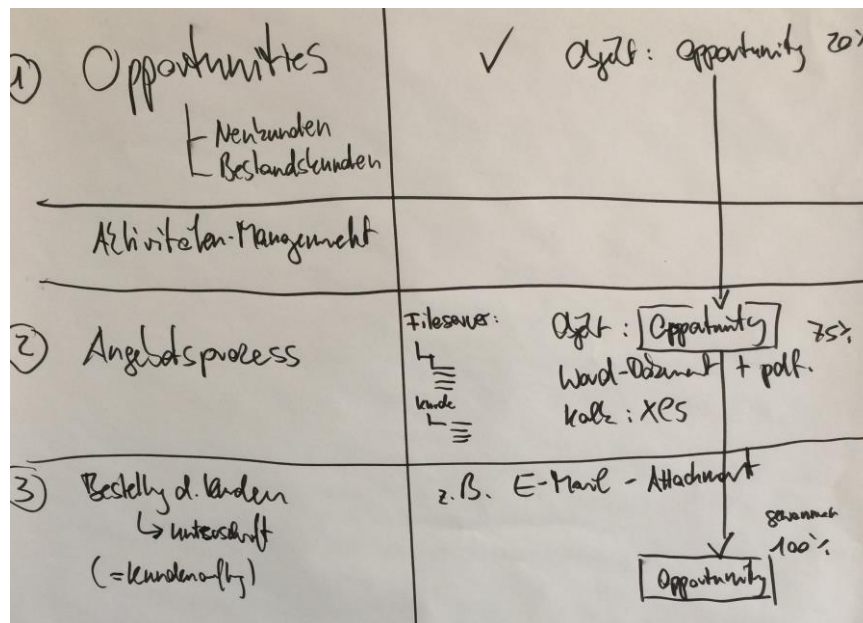 1 Opportunities ✓ Objekt: Opportunity 20%
Neukunden
Bestandskunden
Aktivitäten-Management
2 Angebotsprozess
Fileserver:
Kunde
Objekt: Opportunity 75%
Word-Dokument + pdf.
Kalk: xls
3 Bestellg d. Kunden
↳ Unterschrift
(=Kundenauftg)
z.B. E-Mail - Attachment
gewonnen
100%
Opportunity